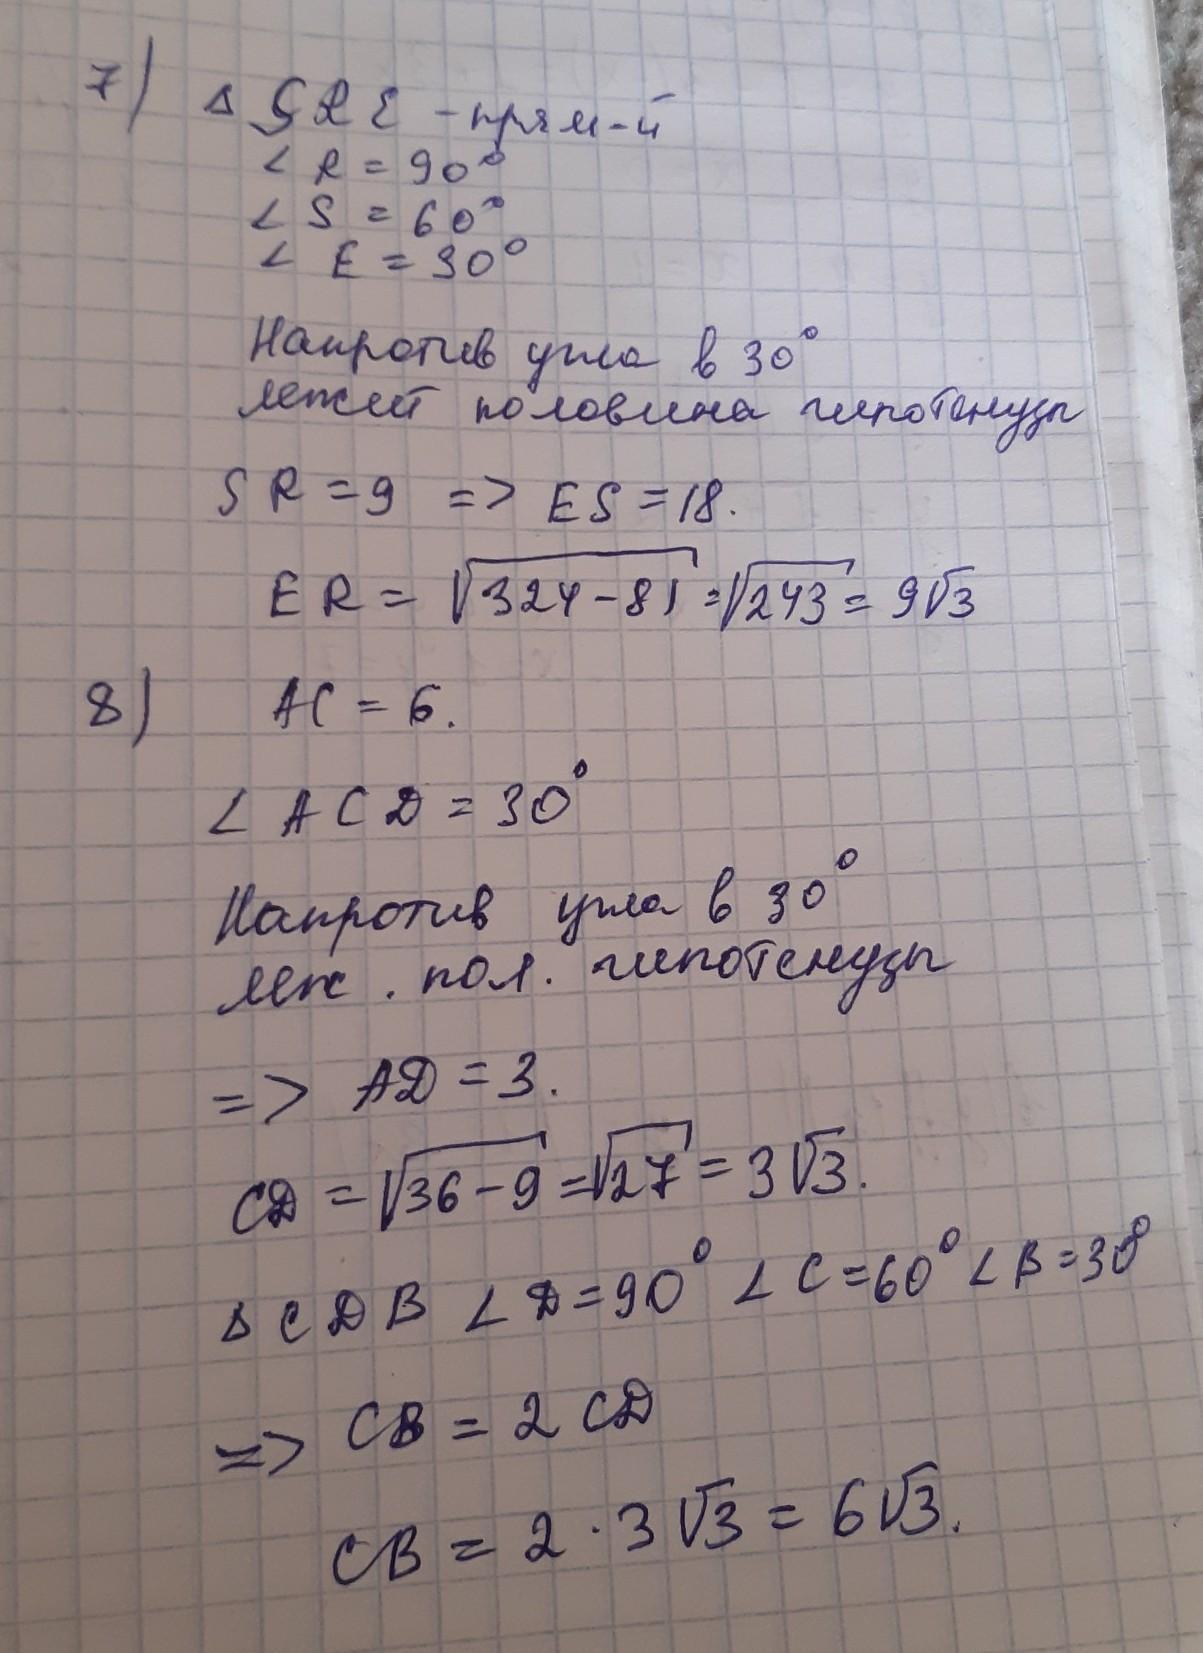 7) Δ SRE - прям-й
∠ R = 90°
∠ S = 60°
∠ E = 30°
Напротив угла в 30°
лежит половина гипотенузы
SR = 9 => ES = 18.
ER = √324-81 = √243 = 9√3
8) AC = 6.
∠ ACD = 30°
Напротив угла в 30°
леж. пол. гипотенузы
=> AD = 3.
CD = √36-9 = √27 = 3√3.
Δ CDB ∠ D = 90° ∠ C = 60° ∠ B = 30°
=> CB = 2 CD
CB = 2 · 3√3 = 6√3.